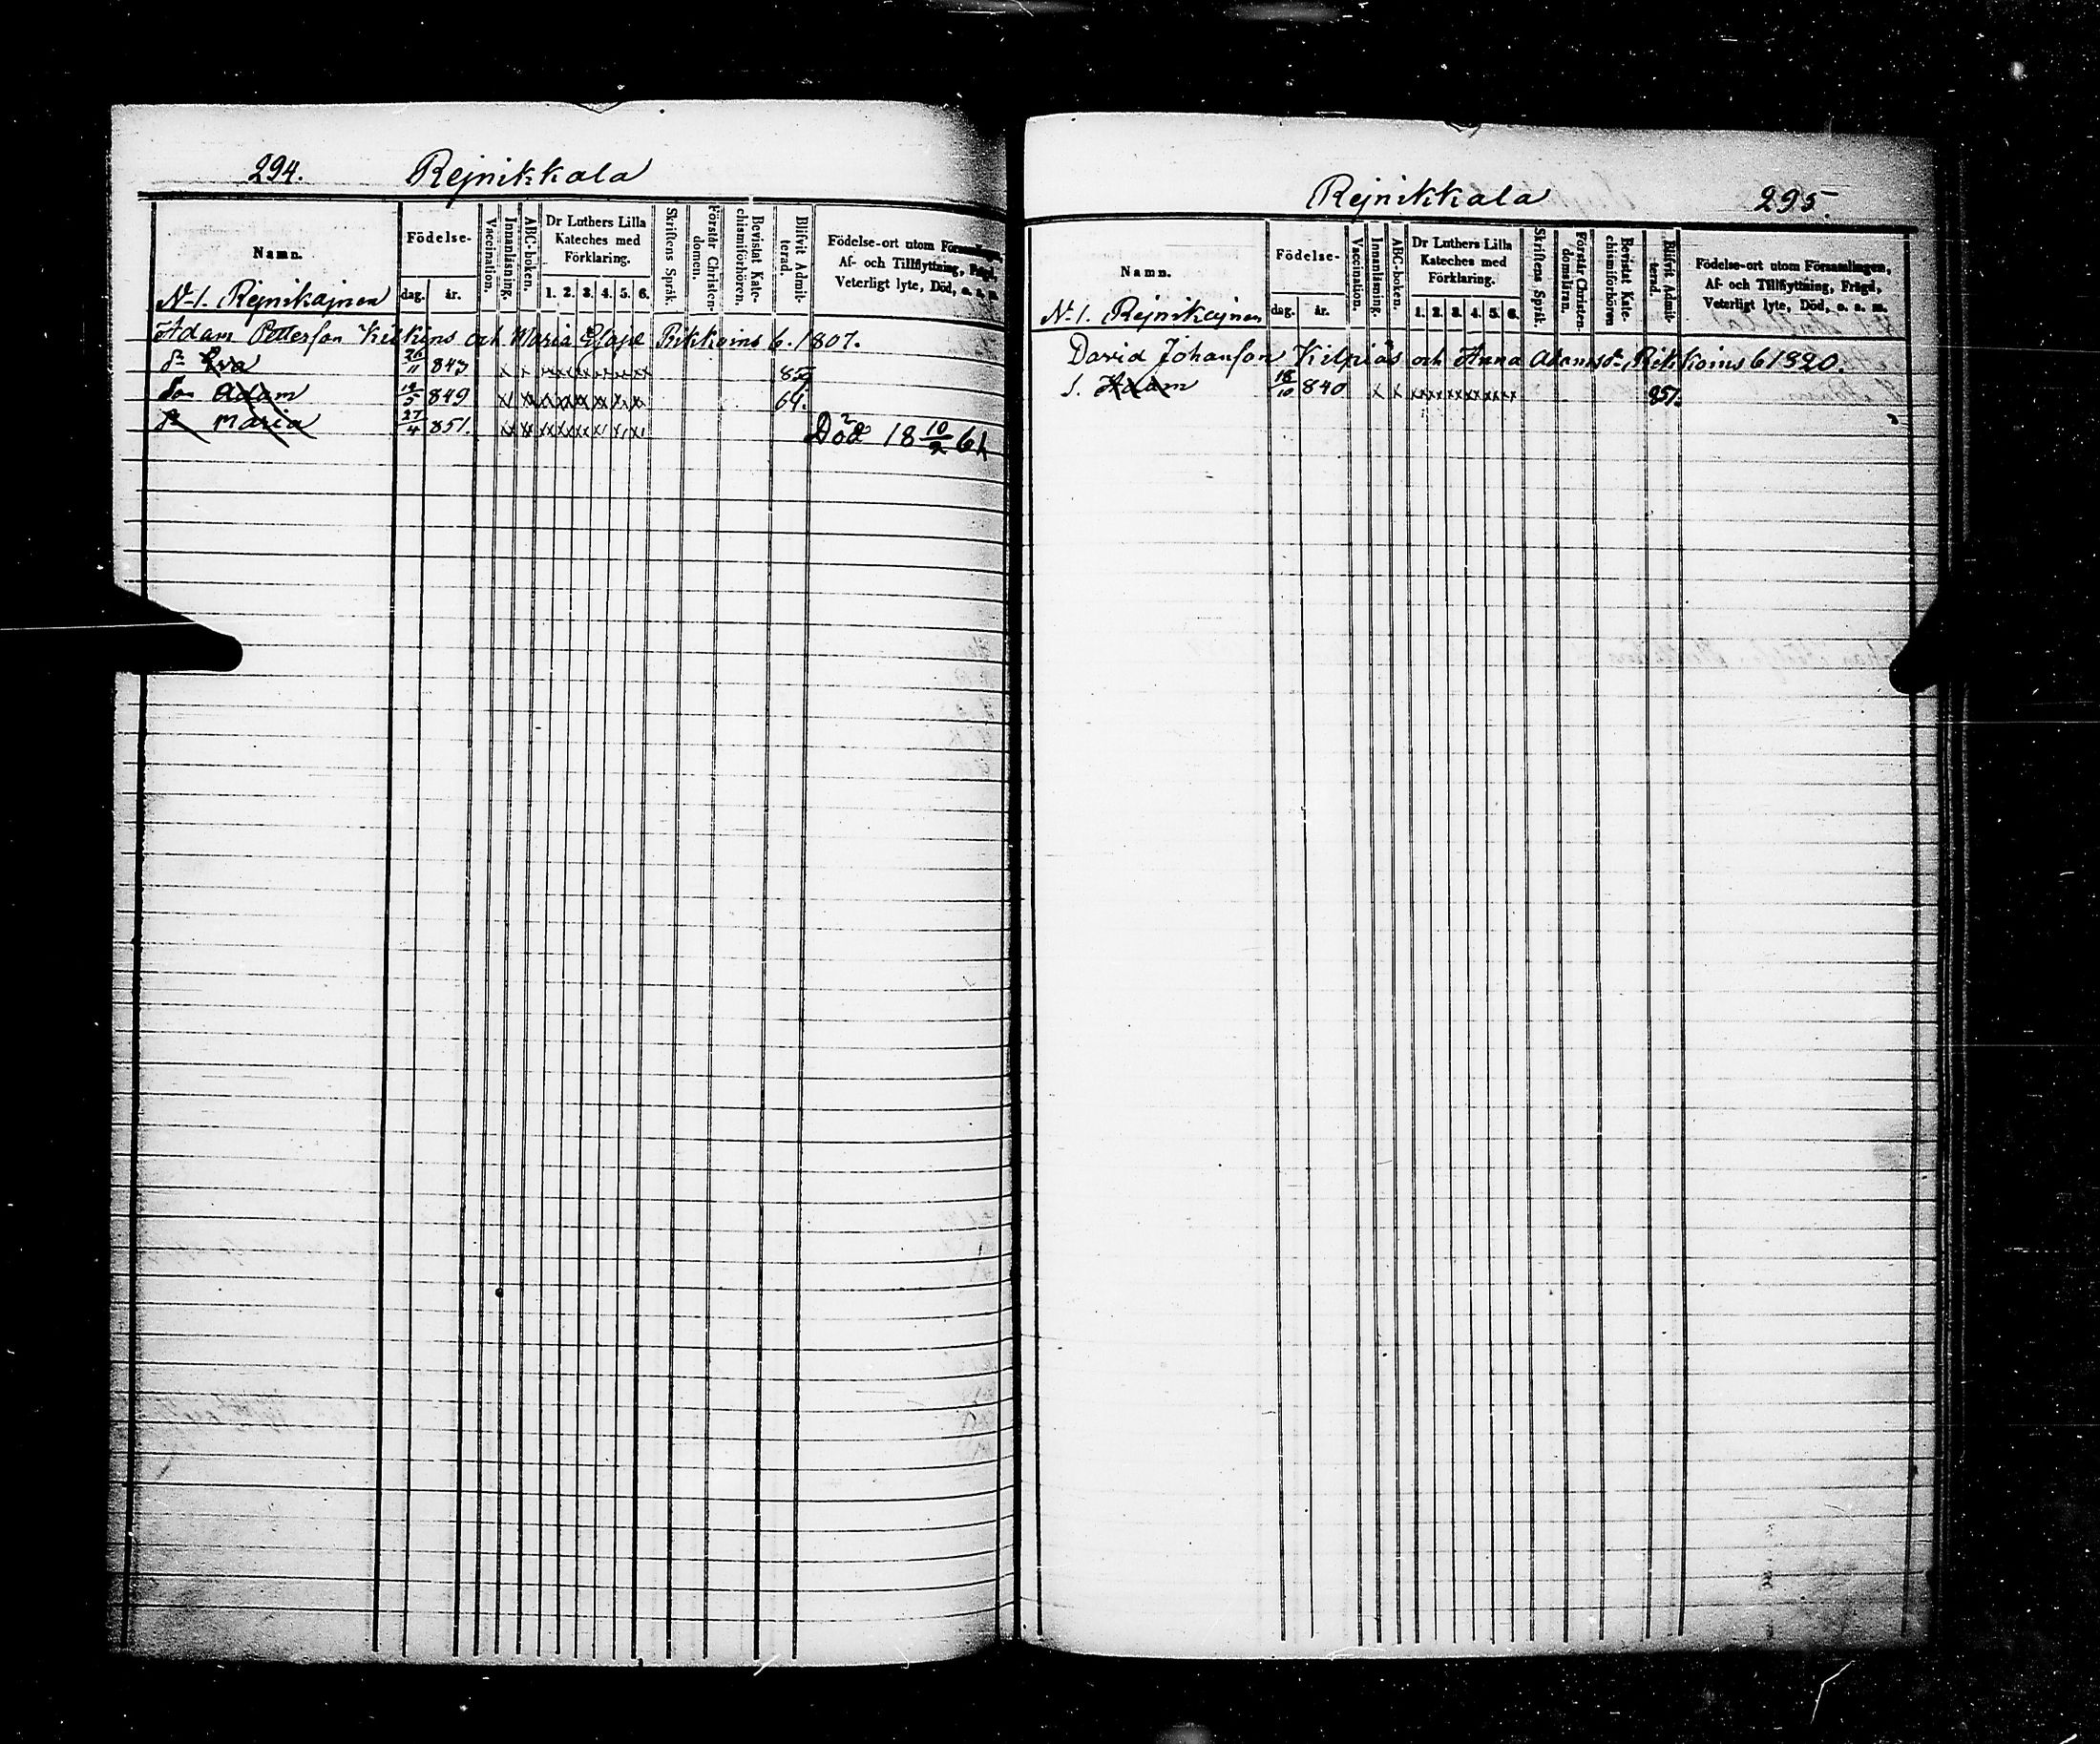 294. Rejnikkala
Namn.
Födelse-
dag. år.
Vaccination.
Innanläsning.
ABC-boken.
Dr Luthers Lilla Kateches med Förklaring.
1. 2. 3. 4. 5. 6.
Skriftens Språk.
Förstår Christendomen.
Bevistat Katechismiförhören.
Blifvit Admitterad.
Födelse-ort utom Församlingen,
Af- och Tillflyttning, Frägd,
Veterligt lyte, Död, o. s. m.
N-1. Rejnikajnen
Adam Pettersson och Maria 6. 1807.
Eva 26/11 843 x x
Adam 849 64.
Maria 27/4 851. Död 18 10/2 61
Rejnikkala 295.
Namn.
Födelse-
dag. år.
Vaccination.
Innanläsning.
ABC-boken.
Dr Luthers Lilla Kateches med Förklaring.
1. 2. 3. 4. 5. 6.
Skriftens Språk.
Förstår Christendomsläran.
Bevistat Katechismiförhören
Blifvit Admitterad.
Födelse-ort utom Församlingen,
Af- och Tillflyttning, Frägd,
Veterligt lyte, Död, o. s. m.
N-1. Rejnikajnen
David Johansson Kilpiäs och Anna Adamsdr 6 1820.
S. Adam 18/10 840 x x 857.